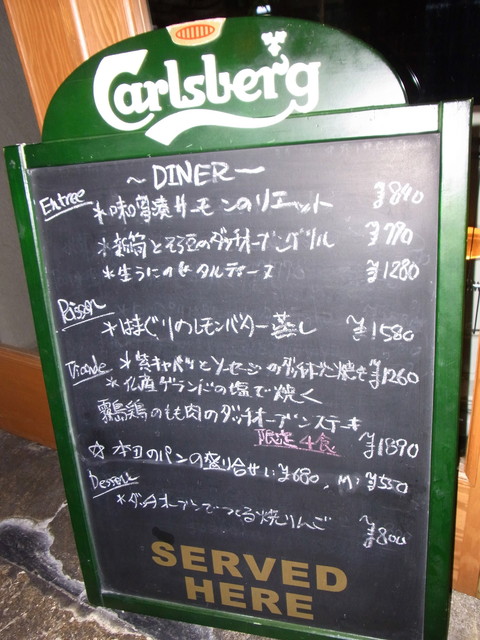 Carlsberg
~DINER~
Entree
*味噌湊サーモンのリエット ¥840
*新筍とそら豆のダッチオーブングリル ¥770
*生うにの タルディーヌ ¥1280
Poisson
*はまぐりのレモンバター蒸し ¥1580
Viande *紫キャベツとソーセージのダッチオーブン焼き ¥1260
* 産ゲランドの塩で焼く
霧島鶏のもも肉のダッチオーブンステーキ
限定4食 ¥1890
☆ 本日のパンの盛り合せ L:¥680, M:¥550
Dessert
*ダッチオーブンでつくる焼りんご ¥800
SERVED
HERE